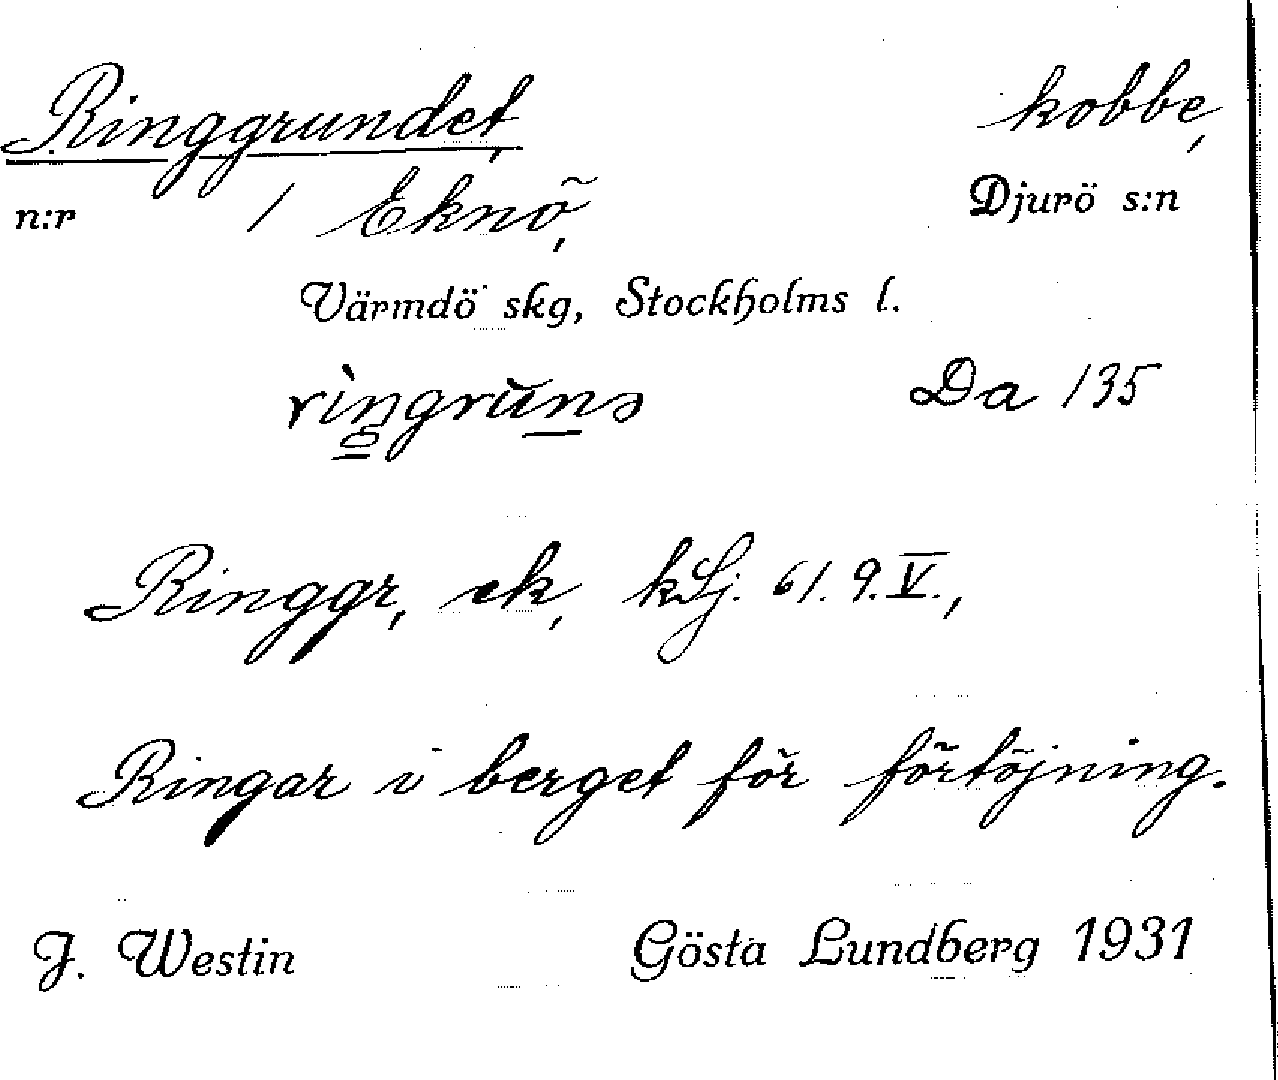 Ringgrundet, kobbe,
n:r 1 Eknö, Djurö s:n
Värmdö skg, Stockholms l.
Da 135
Ringgr, ek, kLj. 61. 9. V.,
Ringar i berget för förtöjning.
J. Westin Gösta Lundberg 1931